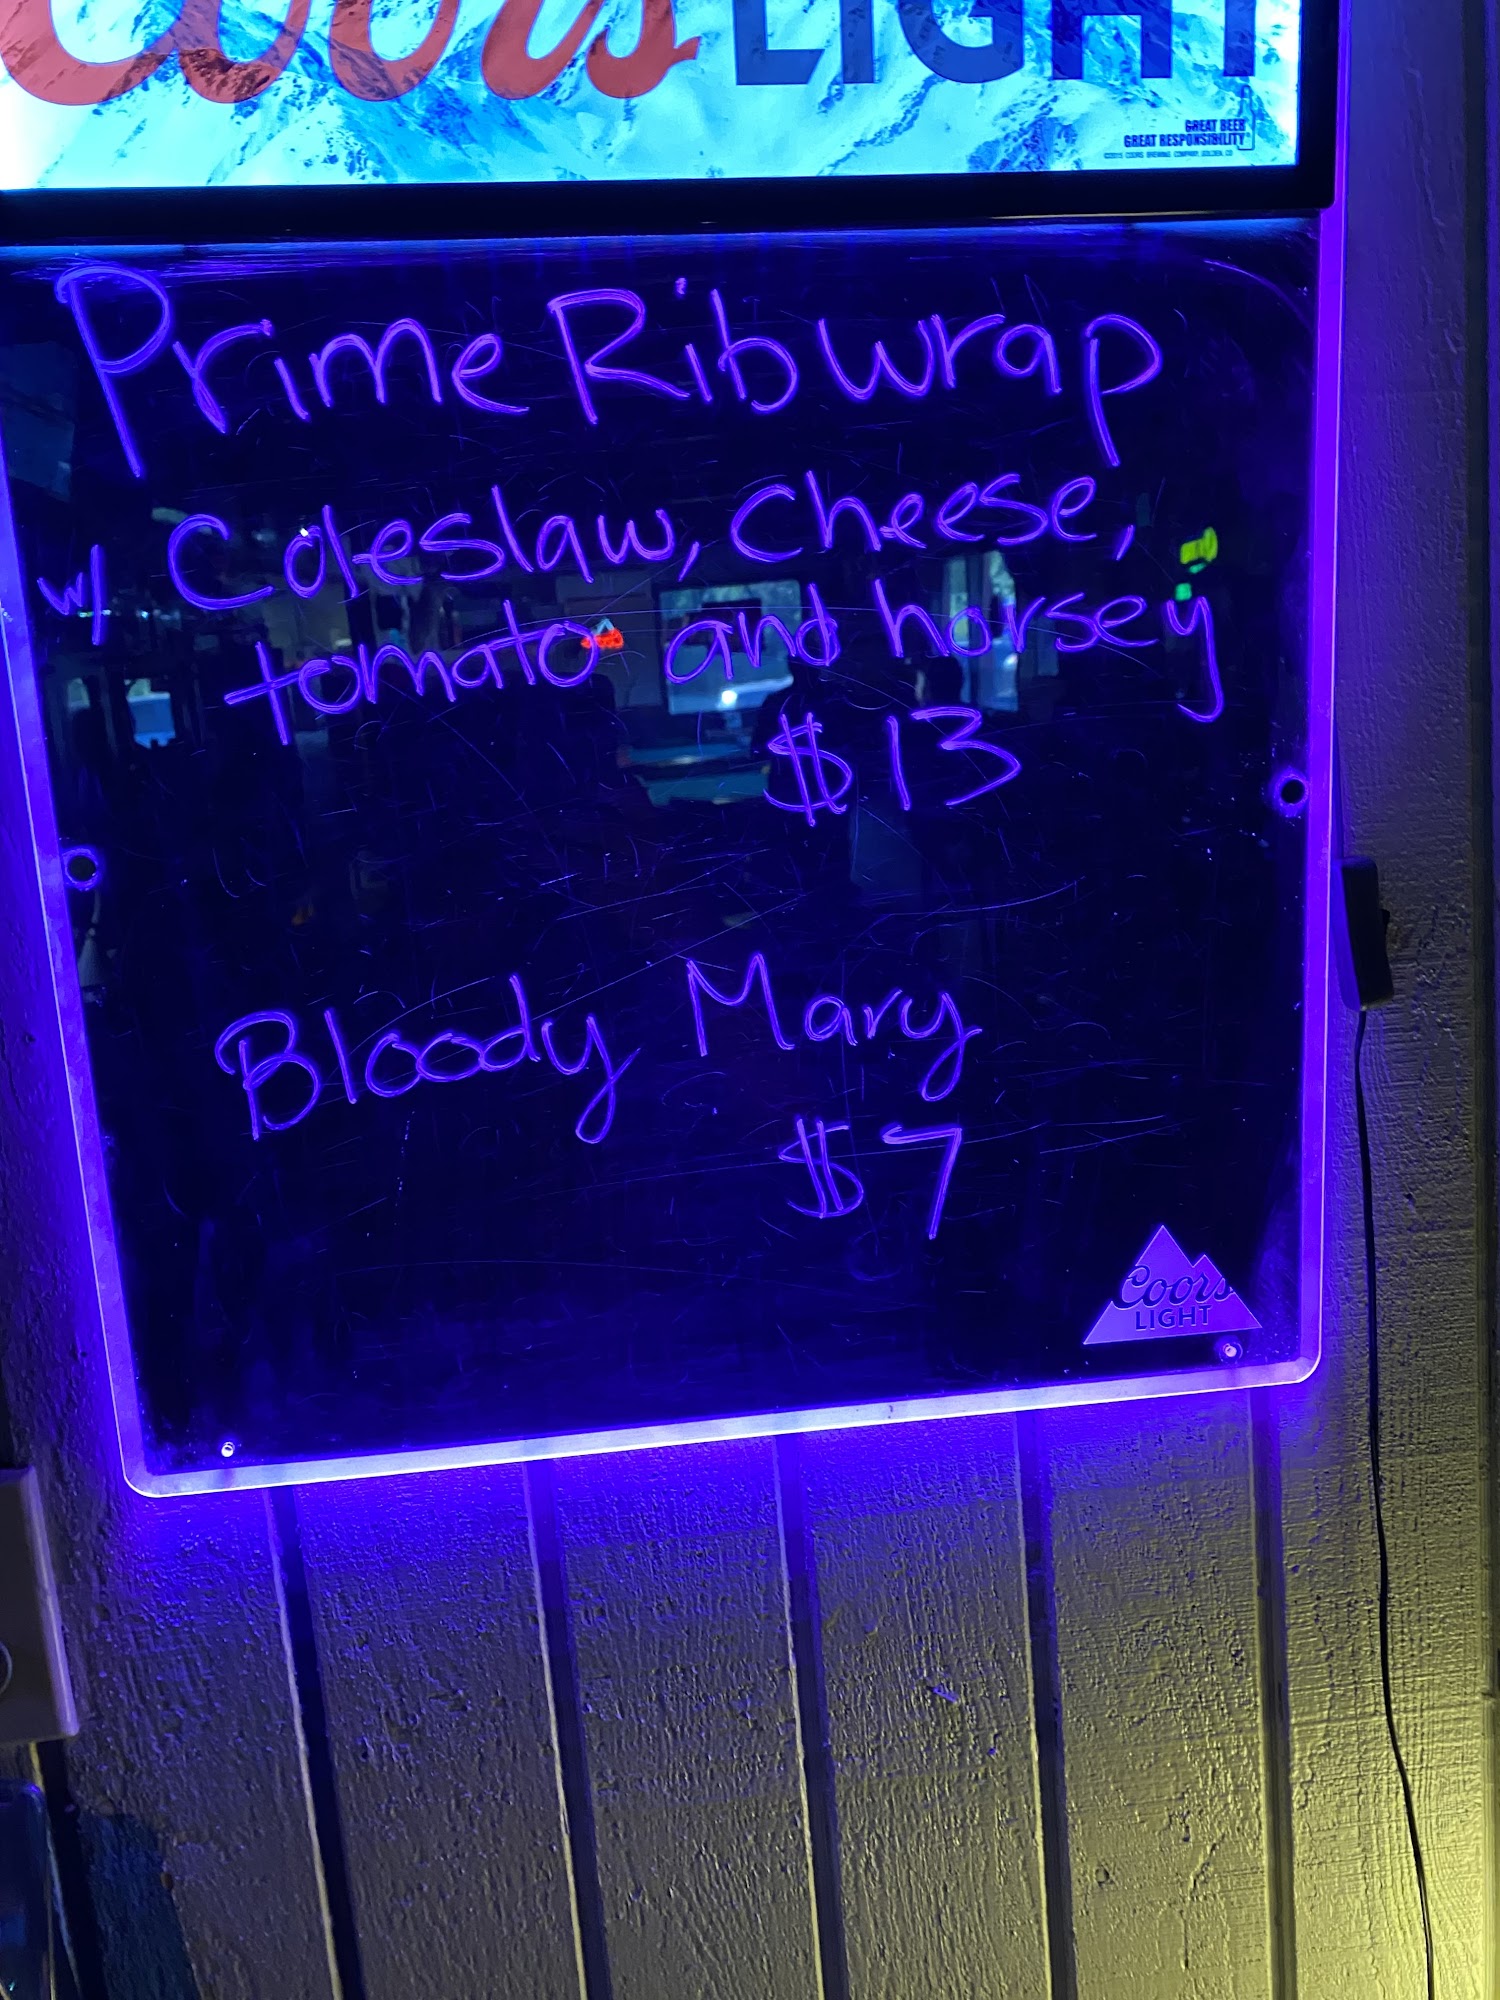 Coors LIGHT
GREAT BEER
GREAT RESPONSIBILITY
Prime Rib wrap
w/ Coleslaw, cheese,
tomato and horsey
$13
Bloody Mary
$7
Coors
LIGHT